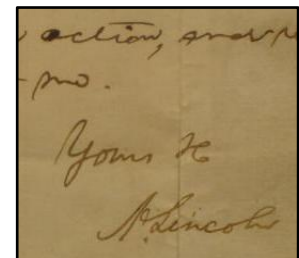 action, and
me.
Yours &c
A. Lincoln